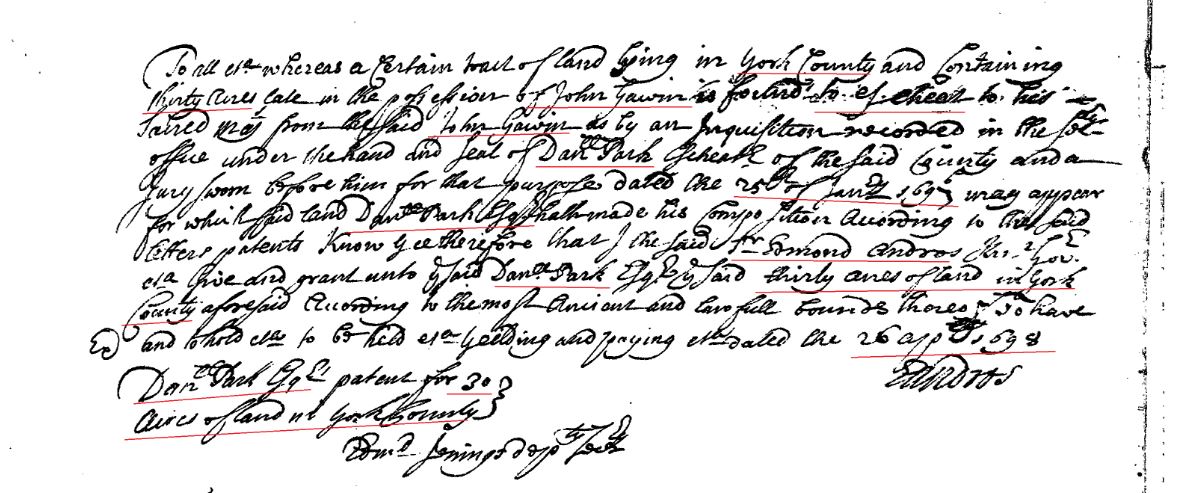 To all etta whereas a Certain tract of land lying in York County and Containing
thirty acres late in the possession of John Gawin is found to escheat to his
Sacred Maty from the said John Gawin as by an Inquisition recorded in the
office under the hand and seal of Danll Park Escheatr of the said County and a
Jury sworn before him for that purpose dated the 25th of Janry 1697 may appear
for which said land Danll Park Esqr hath made his Composition According to the said
letters patents Know yee therefore that I the said Sr Edmond Andros Knt Govr
etta Give and grant unto ye said Danll Park Esqr ye said thirty acres of land in York
County aforesaid According to the most Ancient and lawfull bounds thereof To have
and to hold etta to be held etta yeelding and paying etta dated the 26 apll 1698
Danll Park Esqrs patent for 30
EAndros
Acres of land in York County
Edmd Jenings depty Secty